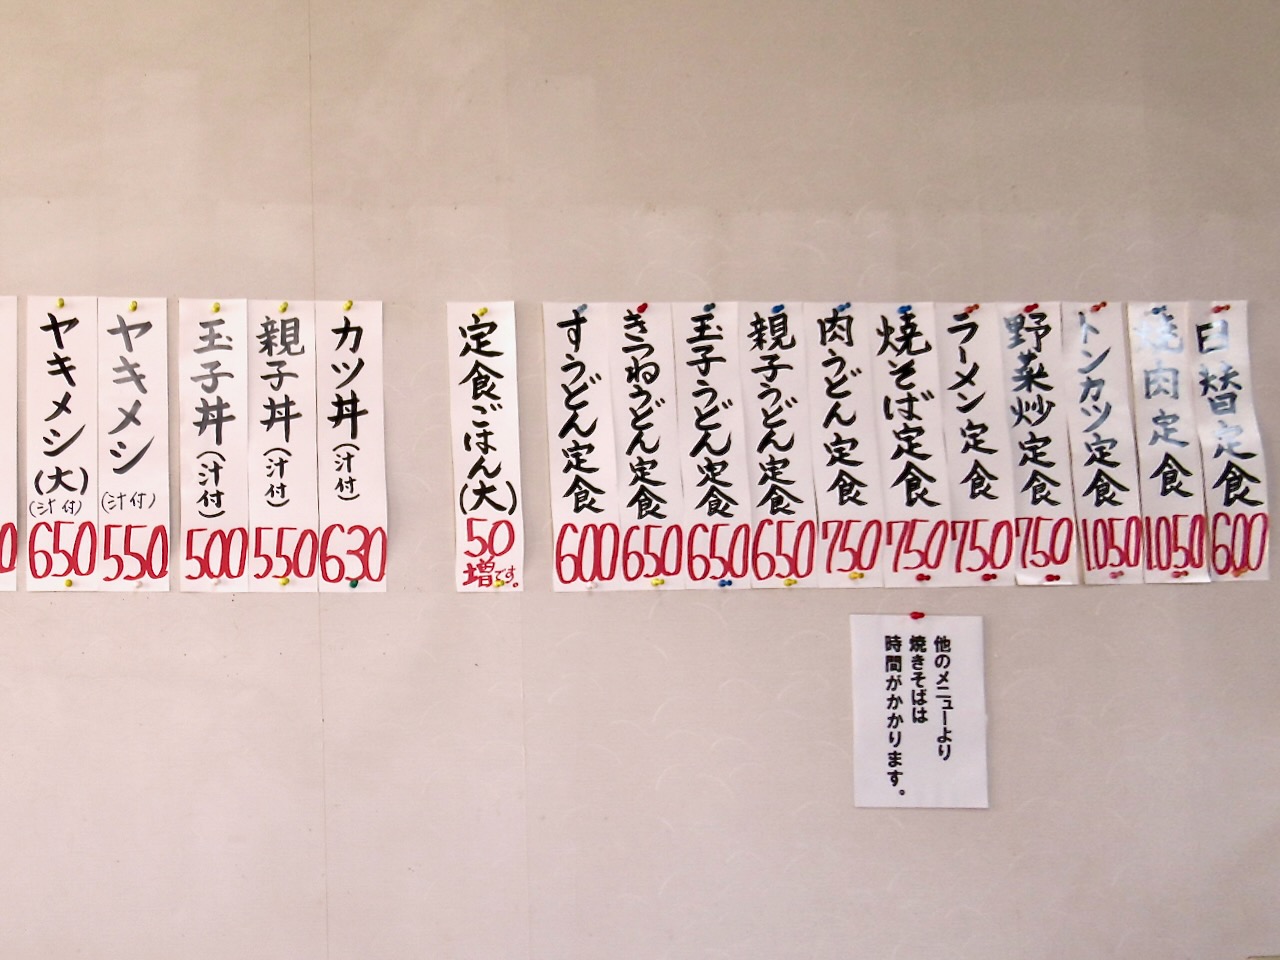 日替定食
600
焼肉定食
1.050
トンカツ定食
1.050
野菜炒定食
750
ラーメン定食
750
焼そば定食
750
肉うどん定食
750
親子うどん定食
650
玉子うどん定食
650
きつねうどん定食
650
すうどん定食
600
定食ごはん(大)
50
増です。
カツ丼(汁付)
630
親子丼(汁付)
550
玉子丼(汁付)
500
ヤキメシ
(汁付)
550
ヤキメシ(大)
(汁付)
650
0
他のメニューより
焼きそばは
時間がかかります。